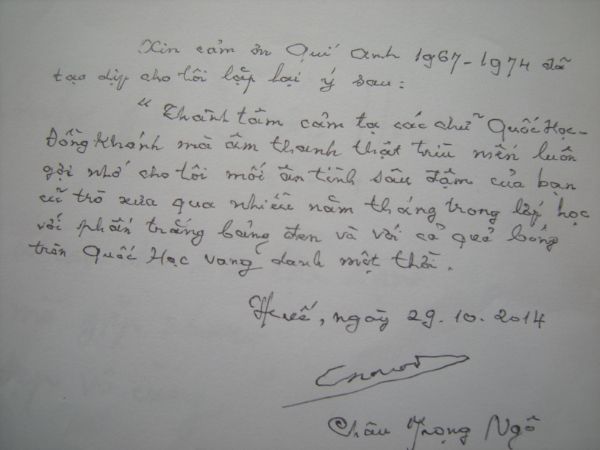 Xin cảm ơn Quí anh 1967-1974 đã
tạo dịp cho tôi lặp lại ý sau:
"Thành tâm cảm tạ các chữ Quốc Học-
Đồng Khánh mà âm thanh thật trìu mến luôn
gợi nhớ cho tôi mối ân tình sâu đậm của bạn
cũ trò xưa qua nhiều năm tháng trong lớp học
với phấn trắng bảng đen và với cả quả bóng
tròn Quốc Học vang danh một thời.
Huế, ngày 29.10.2014
Châu Trọng Ngô